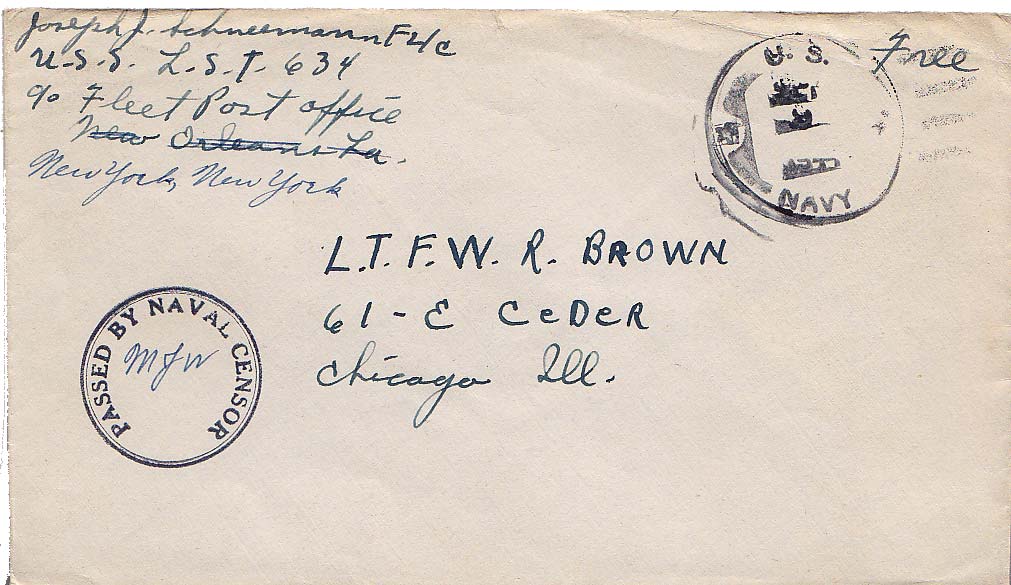 Joseph J. Schneemann F2/c
U.S.S. L.S.T. 634
c/o Fleet Post office
New Orleans La.
New York, New York
Free
U. S.
NAVY
L.T. F. W. R. BROWN
61 - E CeDeR
Chicago Ill.
PASSED BY NAVAL CENSOR
MJW